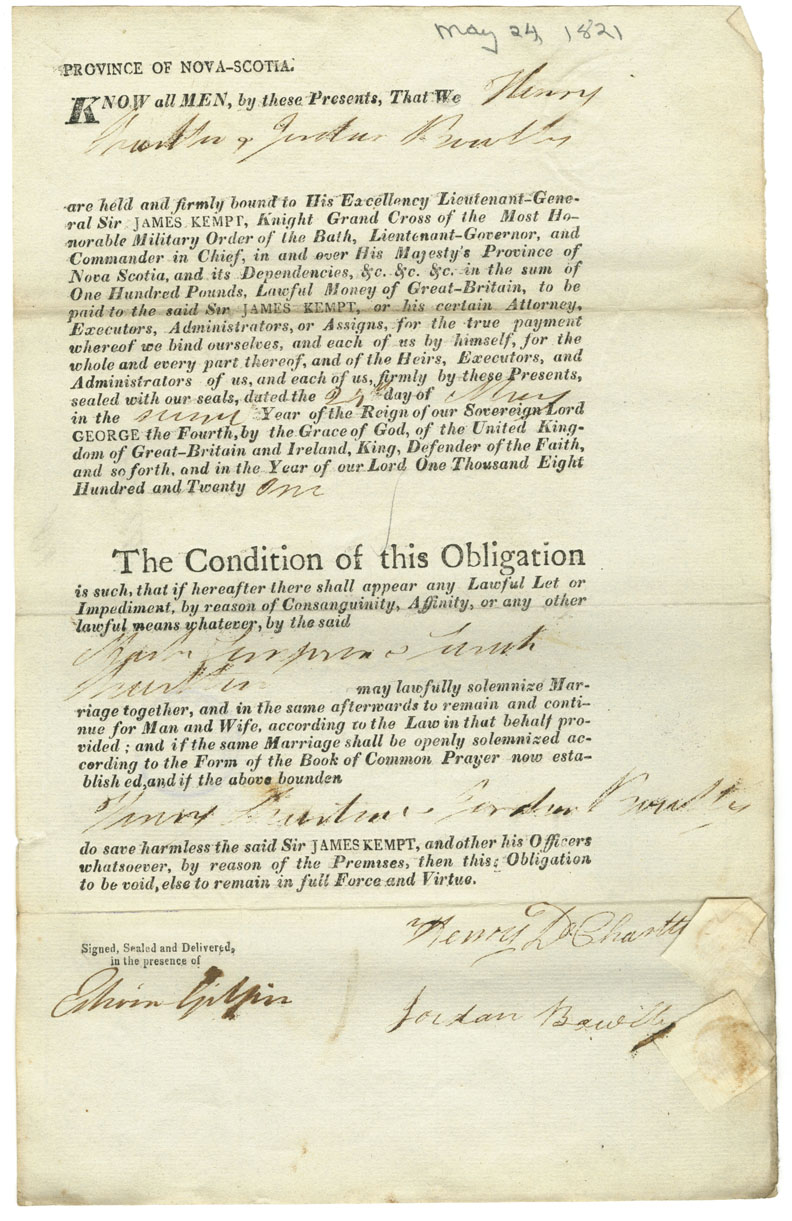 May 24, 1821
PROVINCE OF NOVA-SCOTIA.
KNOW all MEN, by these Presents, That We Henry
& Jordan
are held and firmly bound to His Excellency Lieutenant-Gene-
ral Sir JAMES KEMPT, Knight Grand Cross of the Most Ho-
norable Military Order of the Bath, Lieutenant-Governor, and
Commander in Chief, in and over His Majesty's Province of
Nova Scotia, and its Dependencies, &c. &c. &c. in the sum of
One Hundred Pounds, Lawful Money of Great-Britain, to be
paid to the said Sir JAMES KEMPT, or his certain Attorney,
Executors, Administrators, or Assigns, for the true payment
whereof we bind ourselves, and each of us by himself, for the
whole and every part thereof, and of the Heirs, Executors, and
Administrators of us, and each of us, firmly by these Presents,
sealed with our seals, dated the 24th day of May
in the second Year of the Reign of our Sovereign Lord
GEORGE the Fourth, by the Grace of God, of the United King-
dom of Great-Britain and Ireland, King, Defender of the Faith,
and so forth, and in the Year of our Lord One Thousand Eight
Hundred and Twenty One
The Condition of this Obligation
is such, that if hereafter there shall appear any Lawful Let or
Impediment, by reason of Consanguinity, Affinity, or any other
lawful means whatever, by the said
& Sarah
may lawfully solemnize Mar-
riage together, and in the same afterwards to remain and conti-
nue for Man and Wife, according to the Law in that behalf pro-
vided; and if the same Marriage shall be openly solemnized ac-
cording to the Form of the Book of Common Prayer now esta-
blish ed, and if the above bounden
Henry & Jordan
do save harmless the said Sir JAMES KEMPT, and other his Officers
whatsoever, by reason of the Premises, then this Obligation
to be void, else to remain in full Force and Virtue.
Henry
Signed, Sealed and Delivered,
in the presence of
Edwin Gilpin
Jordan